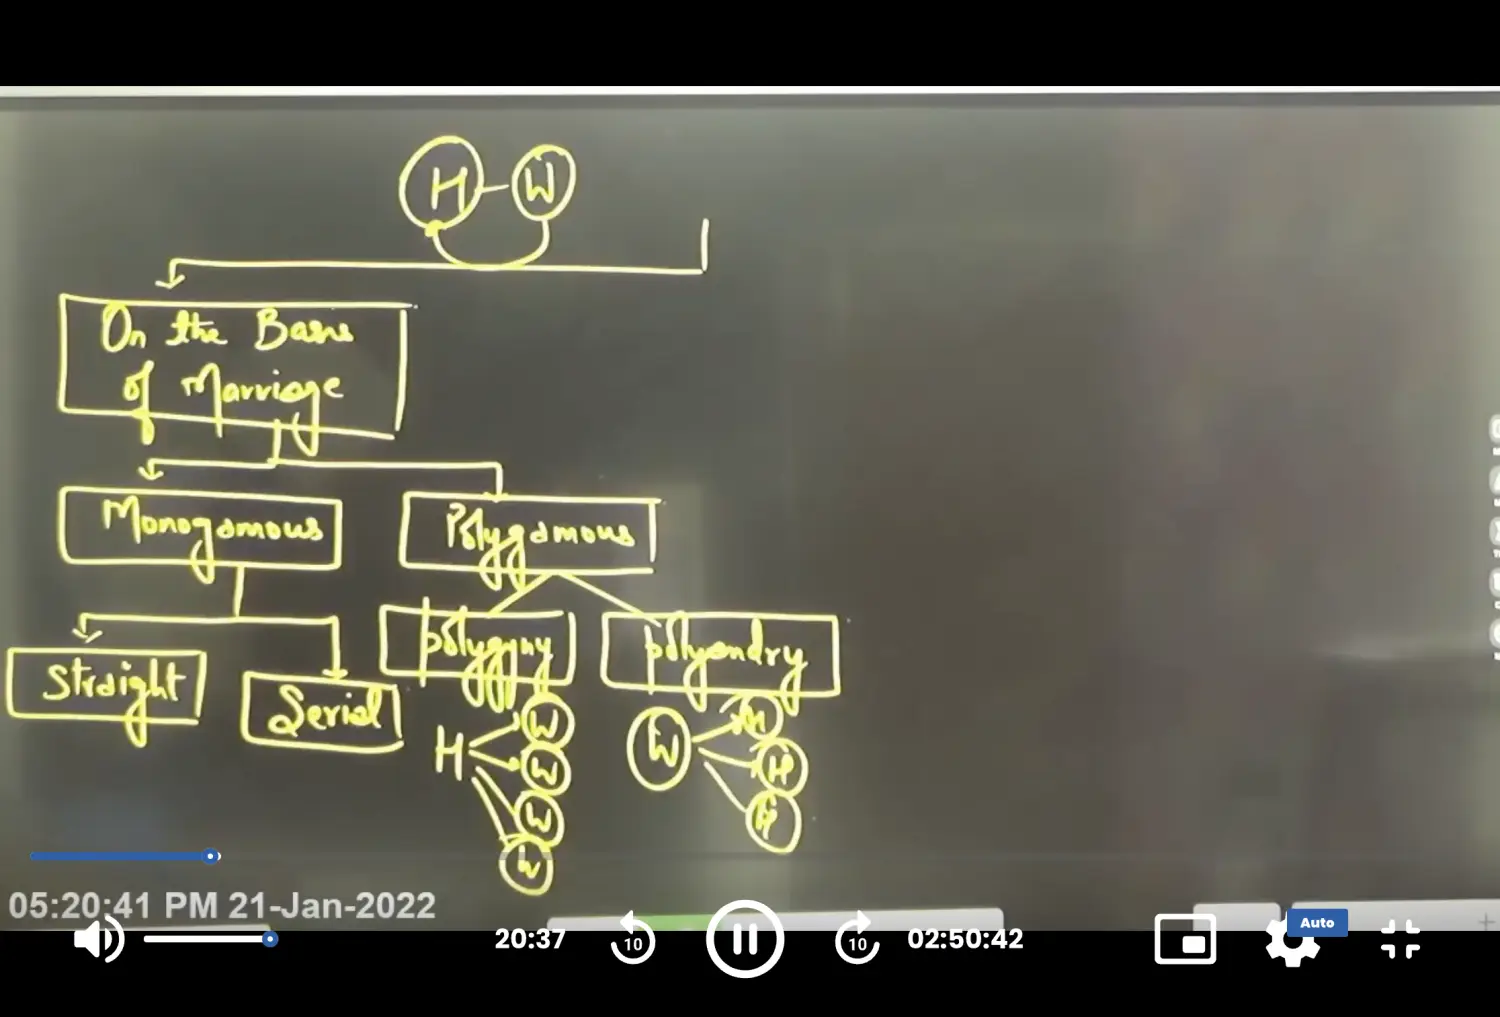 H - W
On the Basis
of Marriage
Monogamous
Polygamous
Straight
Serial
polygyny
polyandry
H
W
W
W
W
W
H
H
H
05:20:41 PM 21-Jan-2022
20:37
10
10
02:50:42
Auto